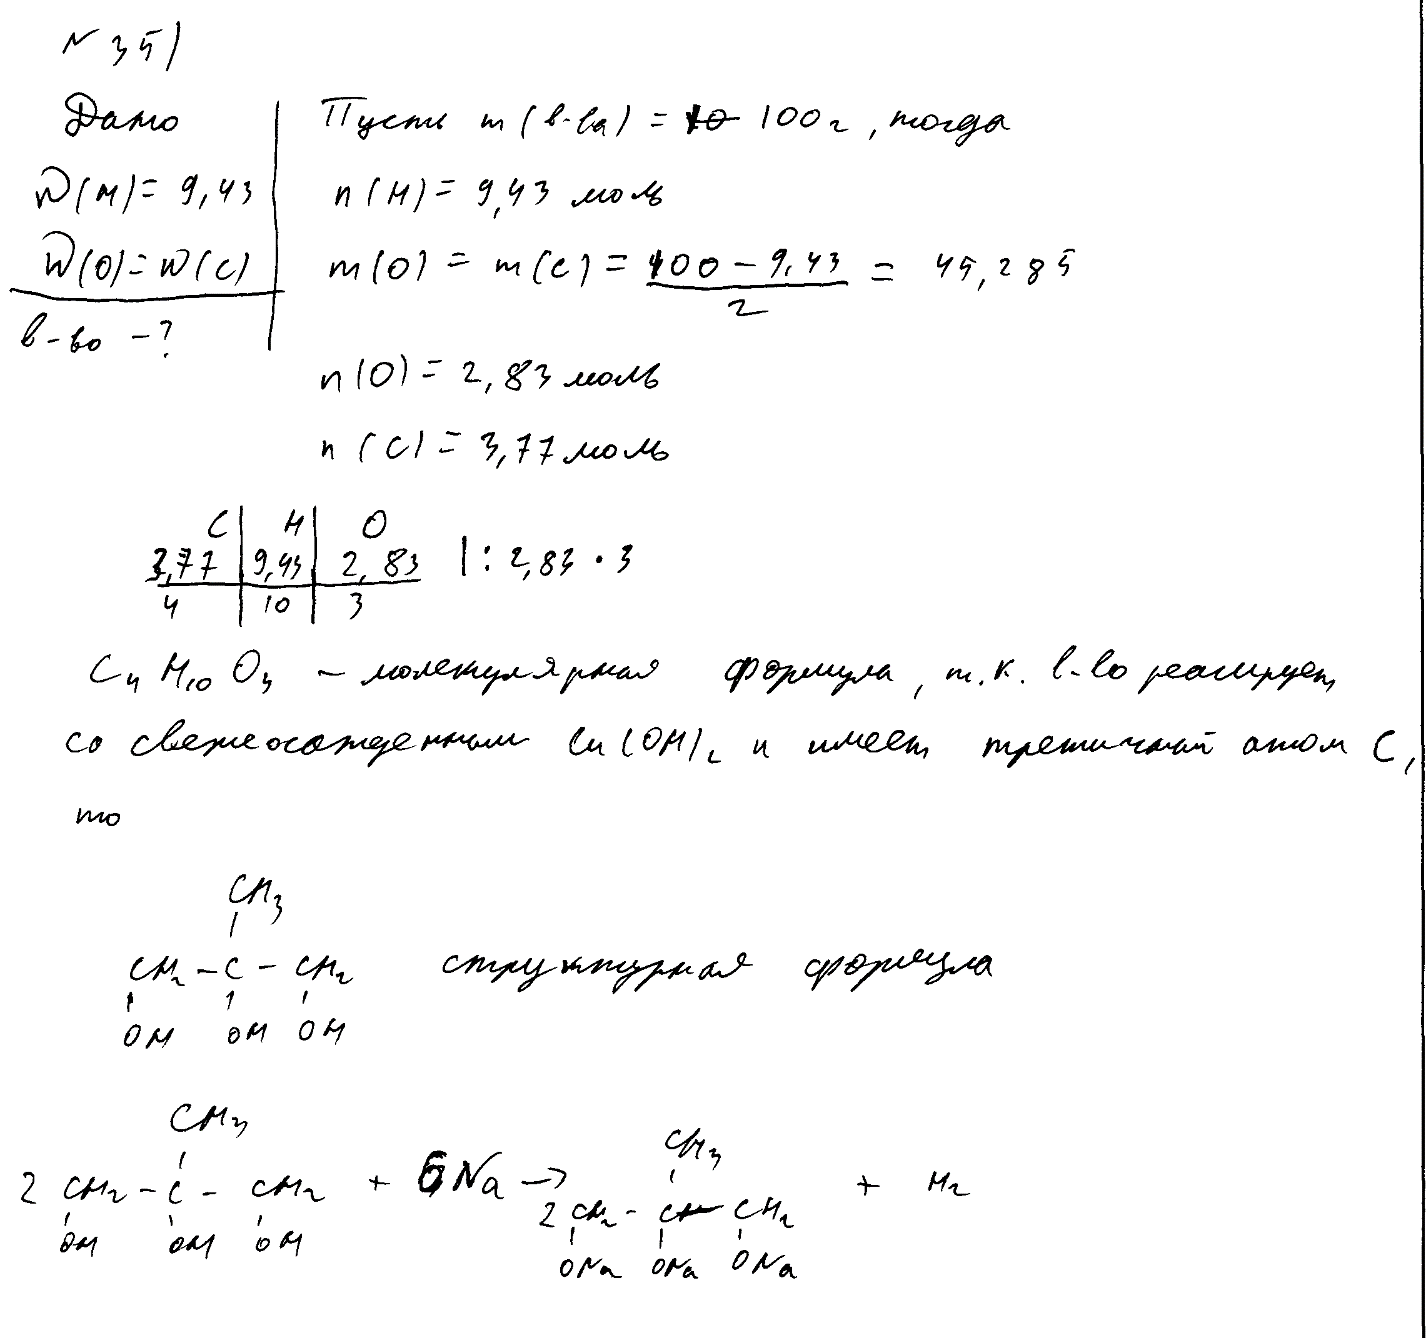 № 35)
Дано
W(H) = 9,43
W(O) = W(C)
в-во - ?
Пусть m(в-ва) = 100г, тогда
n(H) = 9,43 моль
m(O) = m(C) = (100 - 9,43) / 2 = 45,285
n(O) = 2,83 моль
n(C) = 3,77 моль
C | H | O
3,77 | 9,43 | 2,83 |: 2,83 · 3
4 | 10 | 3
C4H10O3 - молекулярная формула, т.к. в-во реагирует
со свежеосажденным Cu(OH)2 и имеет третичный атом C,
то
CH3
CH2 - C - CH2 структурная формула
OH OH OH
CH3 CH3
2 CH2 - C - CH2 + 6Na → 2 CH2 - C - CH2 + H2
OH OH OH ONa ONa ONa